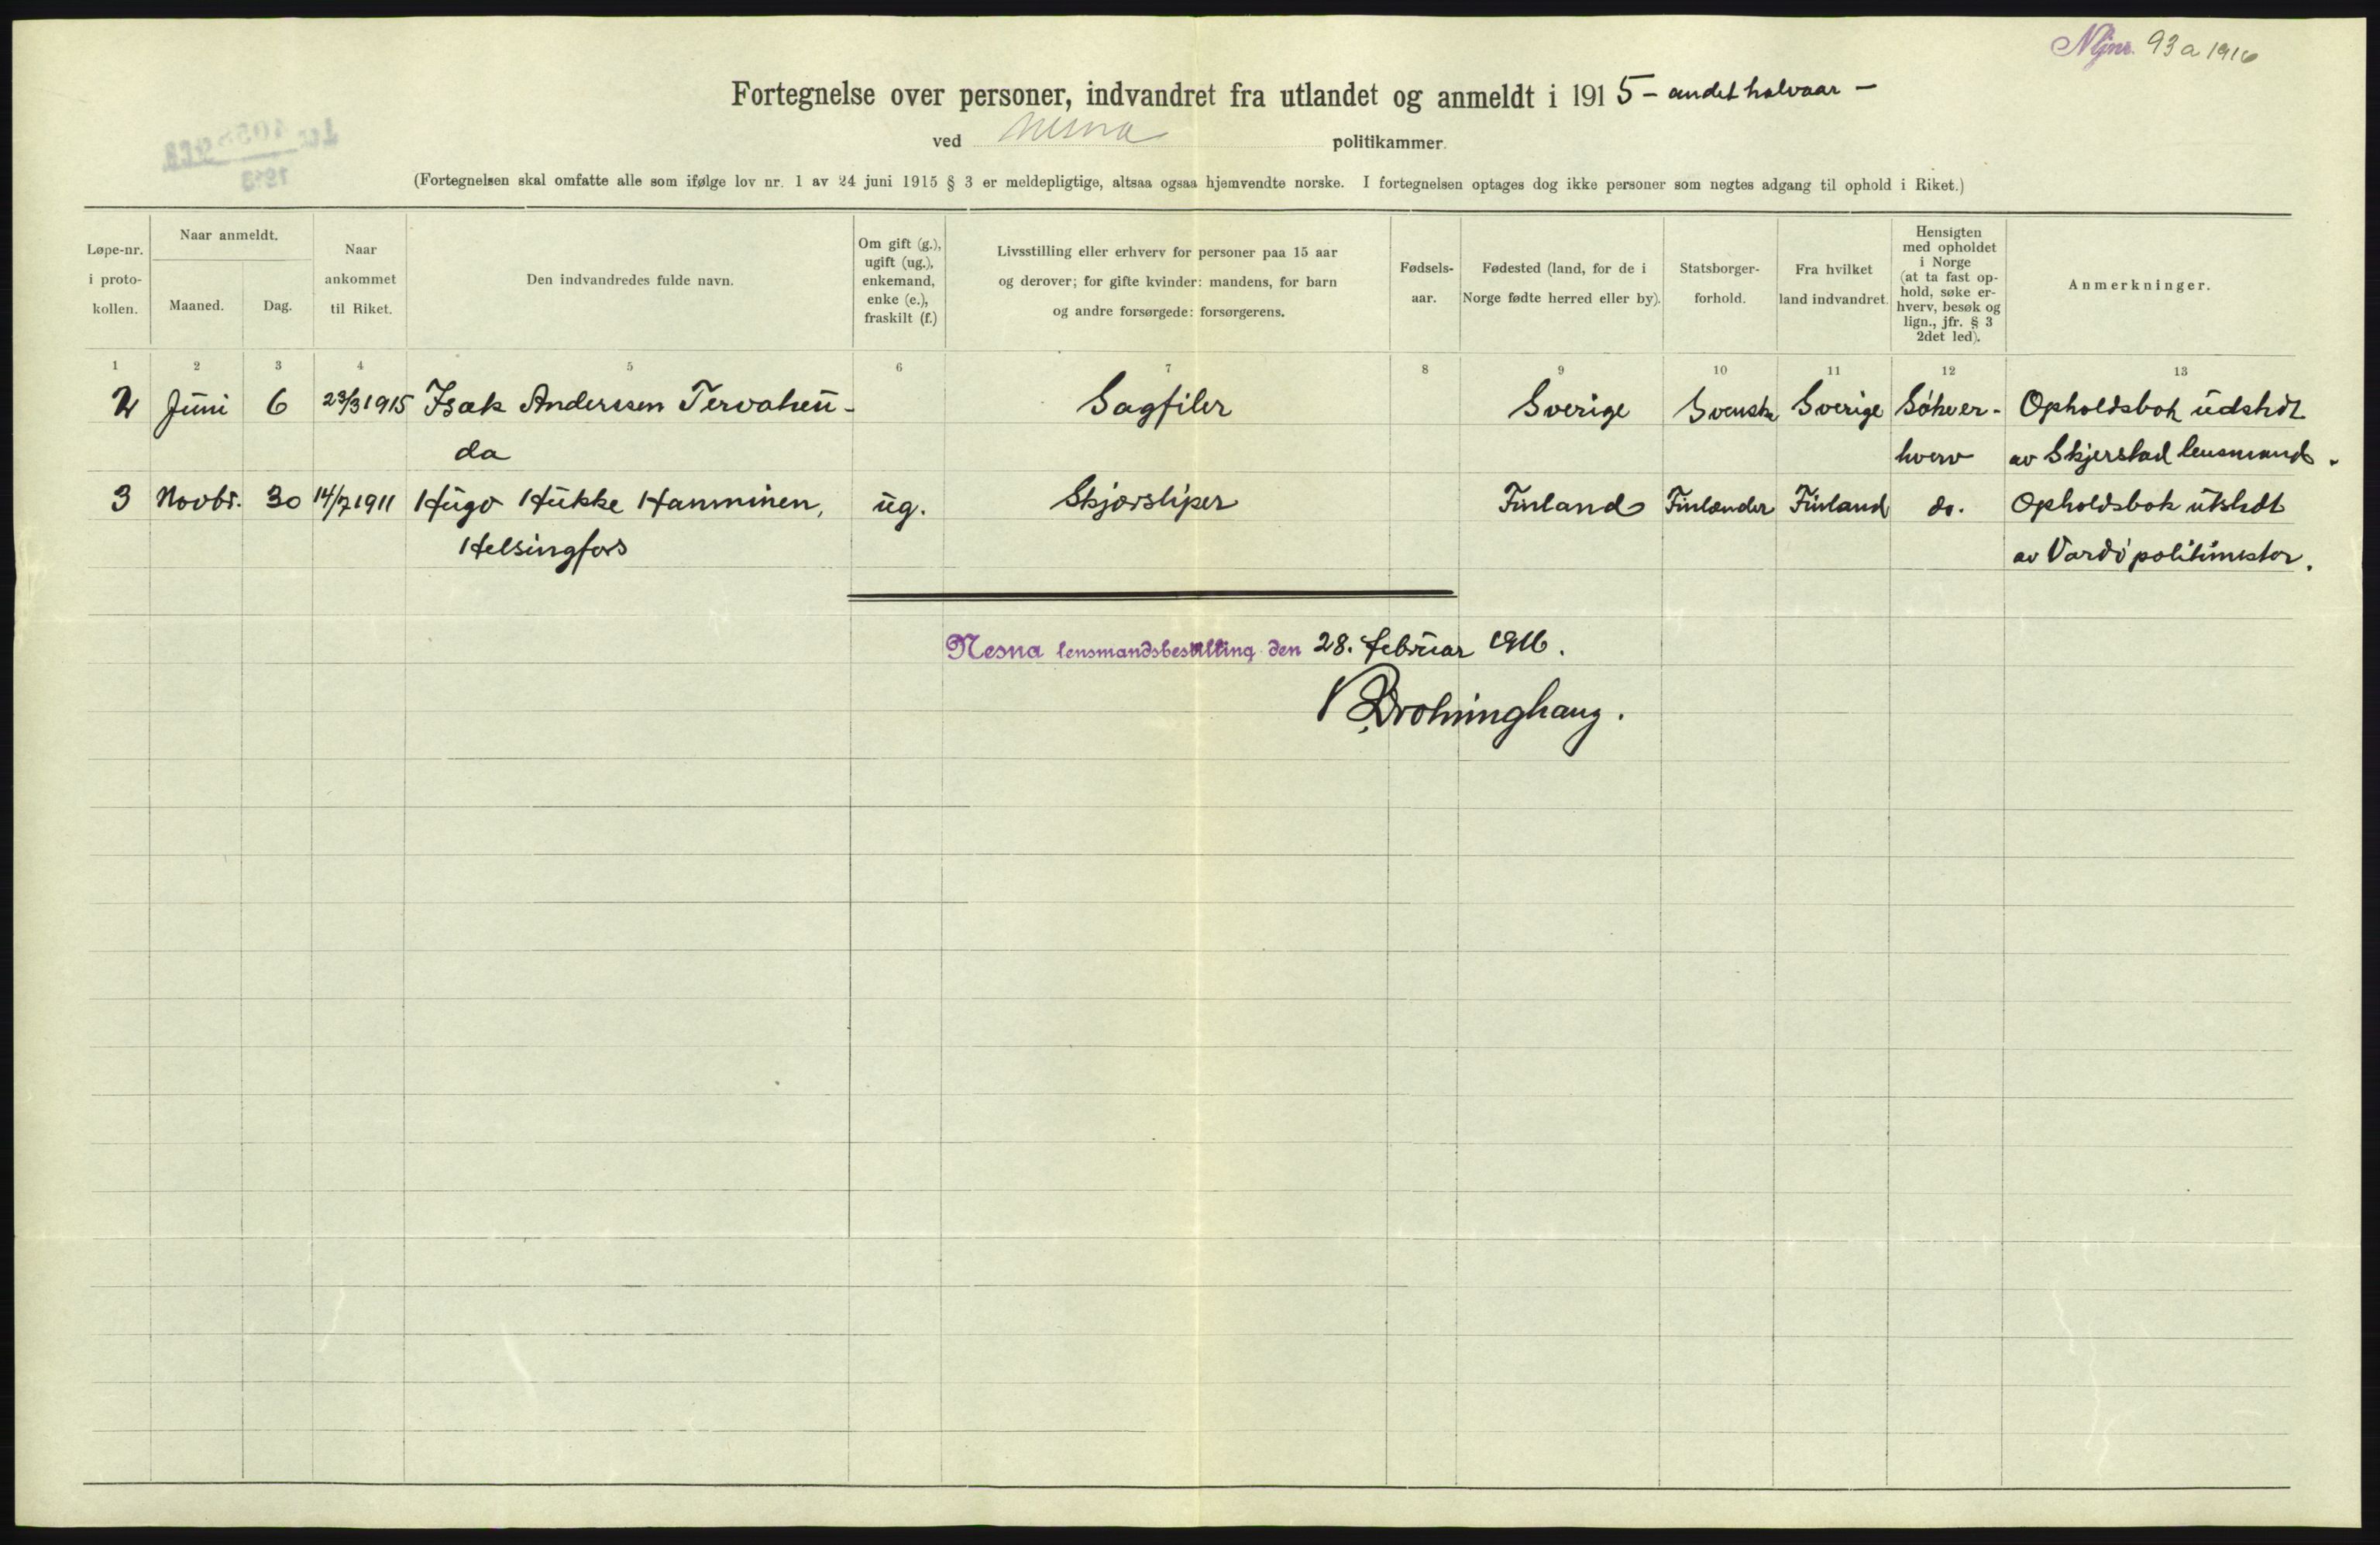 Njnr. 93 a 1916
Fortegnelse over personer, indvandret fra utlandet og anmeldt i 1915 – andet halvaar –
ved Nesna politikammer.
(Fortegnelsen skal omfatte alle som ifølge lov nr. 1 av 24 juni 1915 § 3 er meldepligtige, altsaa ogsaa hjemvendte norske. I fortegnelsen optages dog ikke personer som negtes adgang til ophold i Riket.)
Løpe-nr.
i proto-
kollen.
Naar anmeldt.
Maaned.
Dag.
Naar
ankommet
til Riket.
Den indvandredes fulde navn.
Om gift (g.),
ugift (ug.),
enkemand,
enke (e.),
fraskilt (f.)
Livsstilling eller erhverv for personer paa 15 aar
og derover; for gifte kvinder: mandens, for barn
og andre forsørgede: forsørgerens.
Fødsels-
aar.
Fødested (land, for de i
Norge fødte herred eller by).
Statsborger-
forhold.
Fra hvilket
land indvandret.
Hensigten
med opholdet
i Norge
(at ta fast op-
hold, søke er-
hverv, besøk og
lign., jfr. § 3
2det led).
Anmerkninger.
1 2 3 4 5 6 7 8 9 10 11 12 13
2 Juni 6 23/3 1915 Isak Anderssen Tervaheu- Sagfiler Sverige Svensk Sverige Söke er- Opholdsbok udstedt
da hverv av Skjerstad lensmand.
3 Novbr. 30 14/7 1911 Hugo Hukke Hanminen, ug. Skjærsliper Finland Finlænder Finland do. Opholdsbok utstedt
Helsingfors av Vardö politimester.
Nesna lensmandsbestilling den 28. februar 1916.